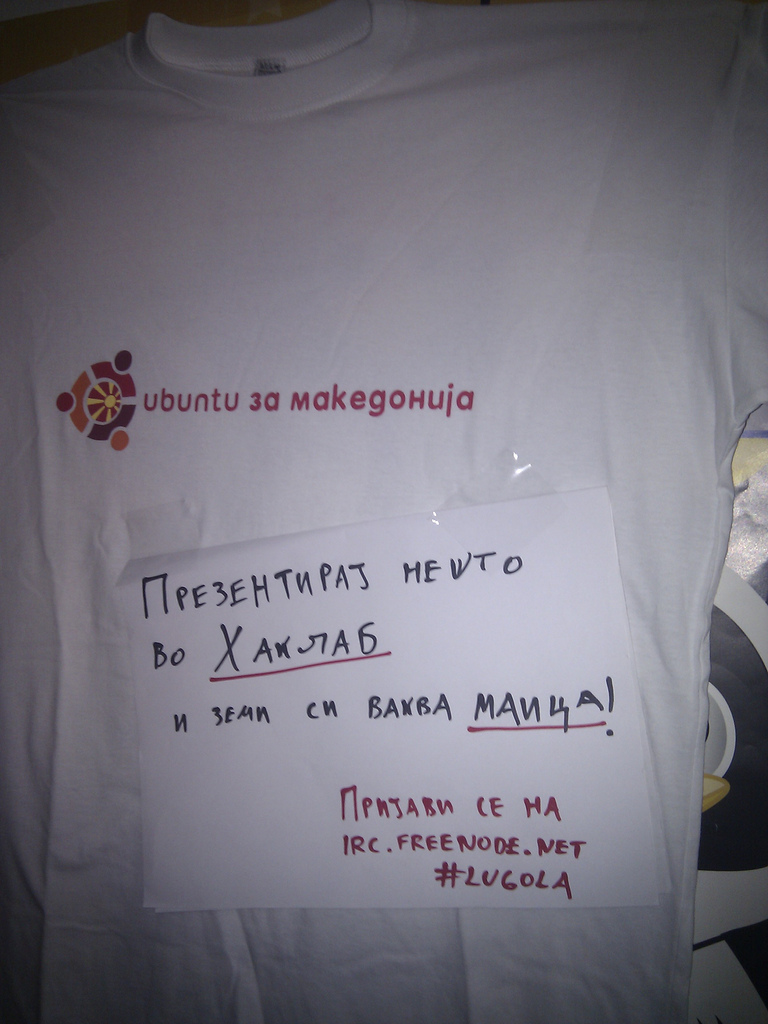 ubuntu за македонија
ПРЕЗЕНТИРАЈ НЕШТО
ВО ХАКЛАБ
И ЗЕМИ СИ ВАКВА МАИЦА!
ПРИЈАВИ СЕ НА
IRC.FREENODE.NET
#LUGOLA